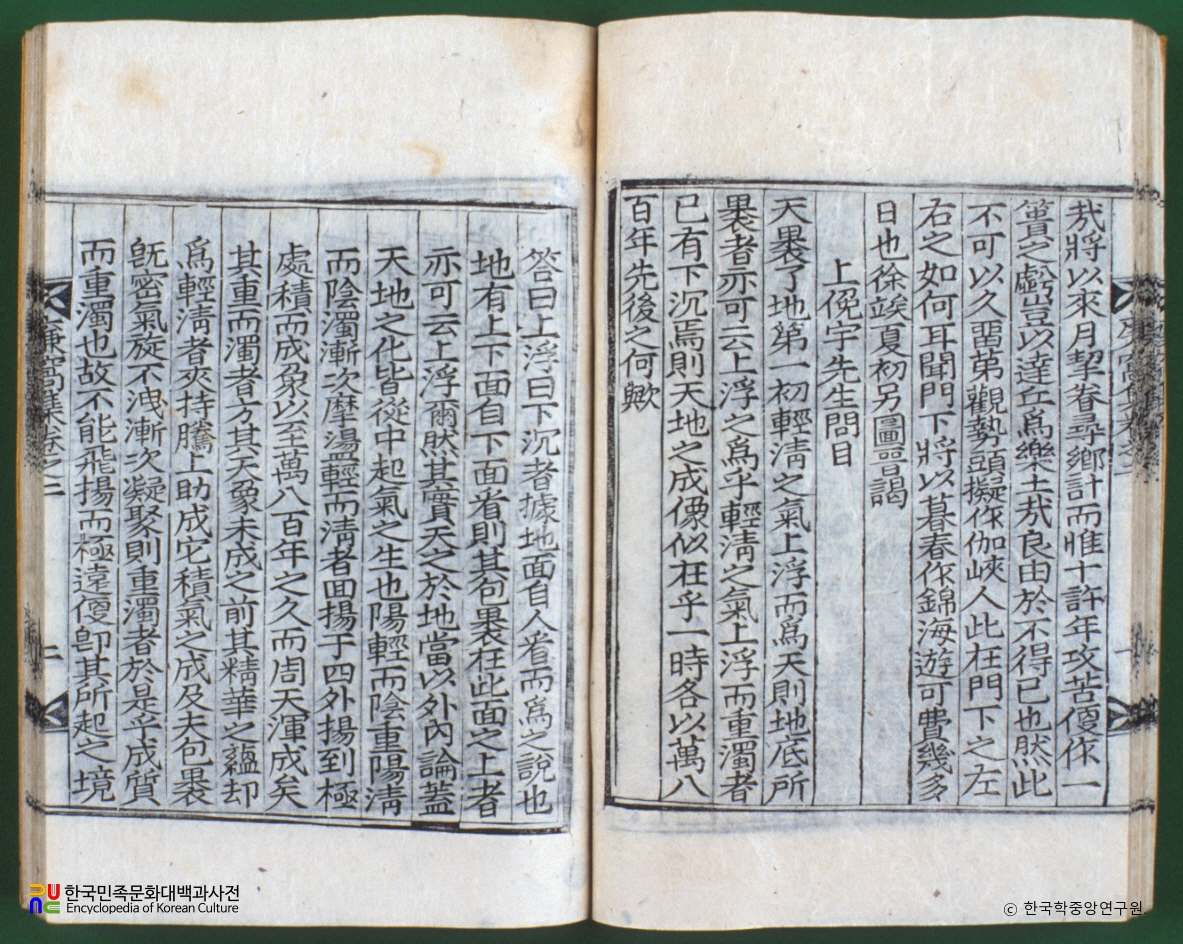 哉將以來月挈眷尋鄉計而惟十許年攻苦便作一
簣之虧豈以達丘爲樂土哉良由於不得已也然此
不可以久畱第觀勢頭擬作伽峽人此在門下之左
右之如何耳聞門下將以暮春作錦海遊可費幾多
日也徐竢夏初另圖晋謁
上俛宇先生問目
天裹了地第一初輕淸之氣上浮而爲天則地底所
裹者亦可云上浮之爲乎輕淸之氣上浮而重濁者
已有下沉焉則天地之成像似在乎一時各以萬八
百年先後之何歟
答曰上浮曰下沉者據地面自人看而爲之說也
地有上下面自下面看則其包裹在此面之上者
亦可云上浮爾然其實天之於地當以外內論蓋
天地之化皆從中起氣之生也陽輕而陰重陽淸
而陰濁漸次摩盪輕而淸者面揚于四外揚到極
處積而成象以至萬八百年之久而周天渾成矣
其重而濁者方其天象未成之前其精華之蘊却
爲輕淸者夾持騰上助成它積氣之成及夫包裹
旣密氣旋不洩漸次凝聚則重濁者於是乎成質
而重濁也故不能飛揚而極遠便卽其所起之境
卷之二
二
한국민족문화대백과사전
Encyclopedia of Korean Culture
ⓒ 한국학중앙연구원